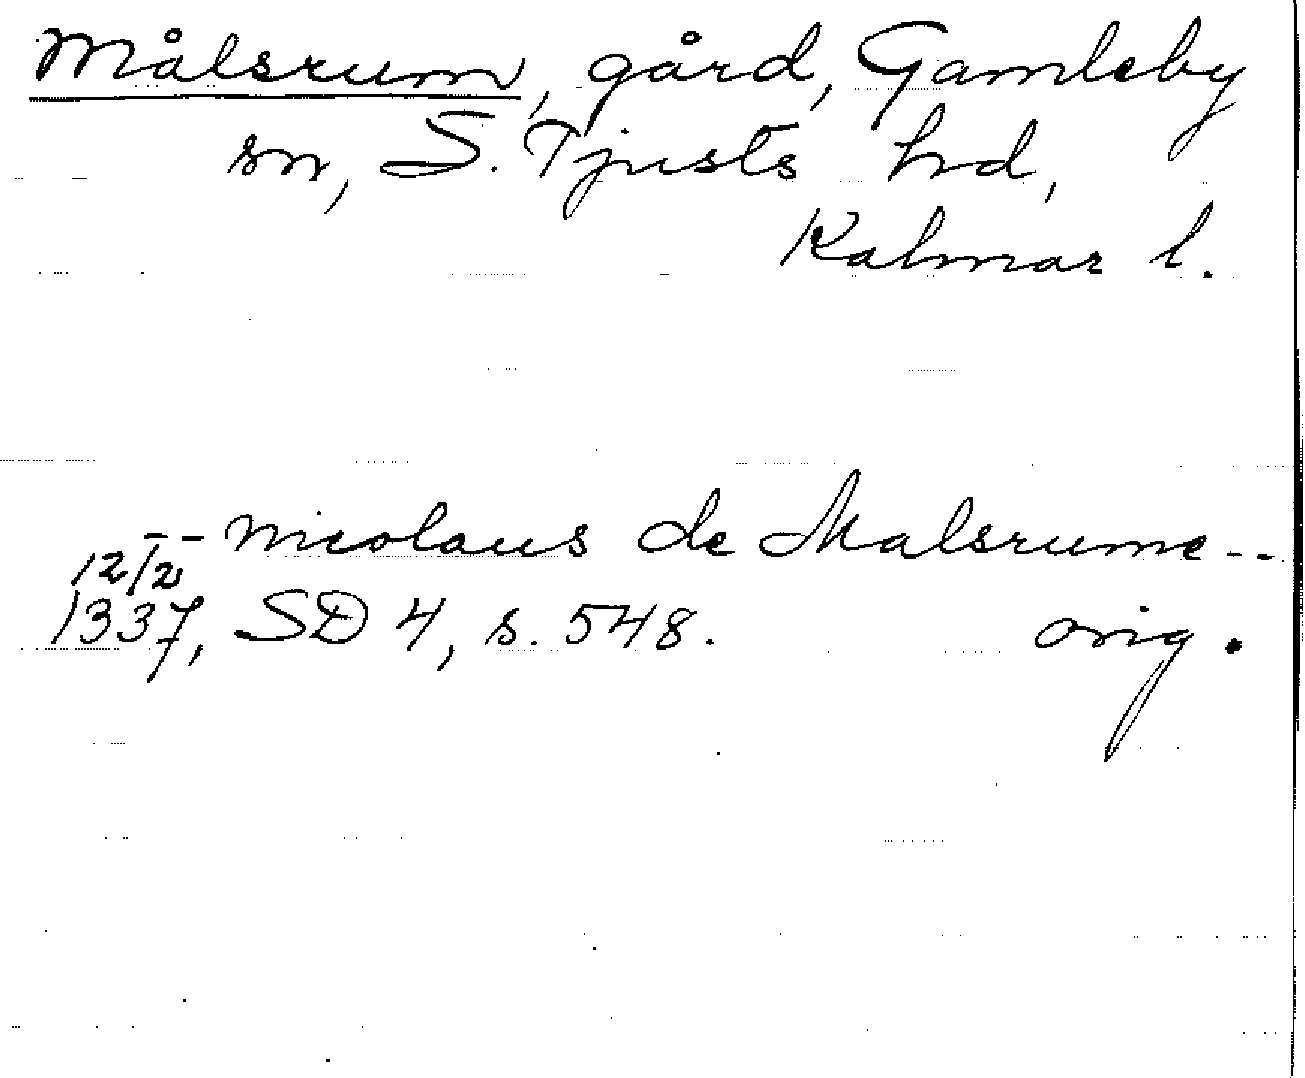 Målsrum, gård, Gamleby
sn, S. Tjusts hrd,
Kalmar l.
-- Nicolaus de Malsrume --
12/2 1337, SD 4, s. 548. orig.